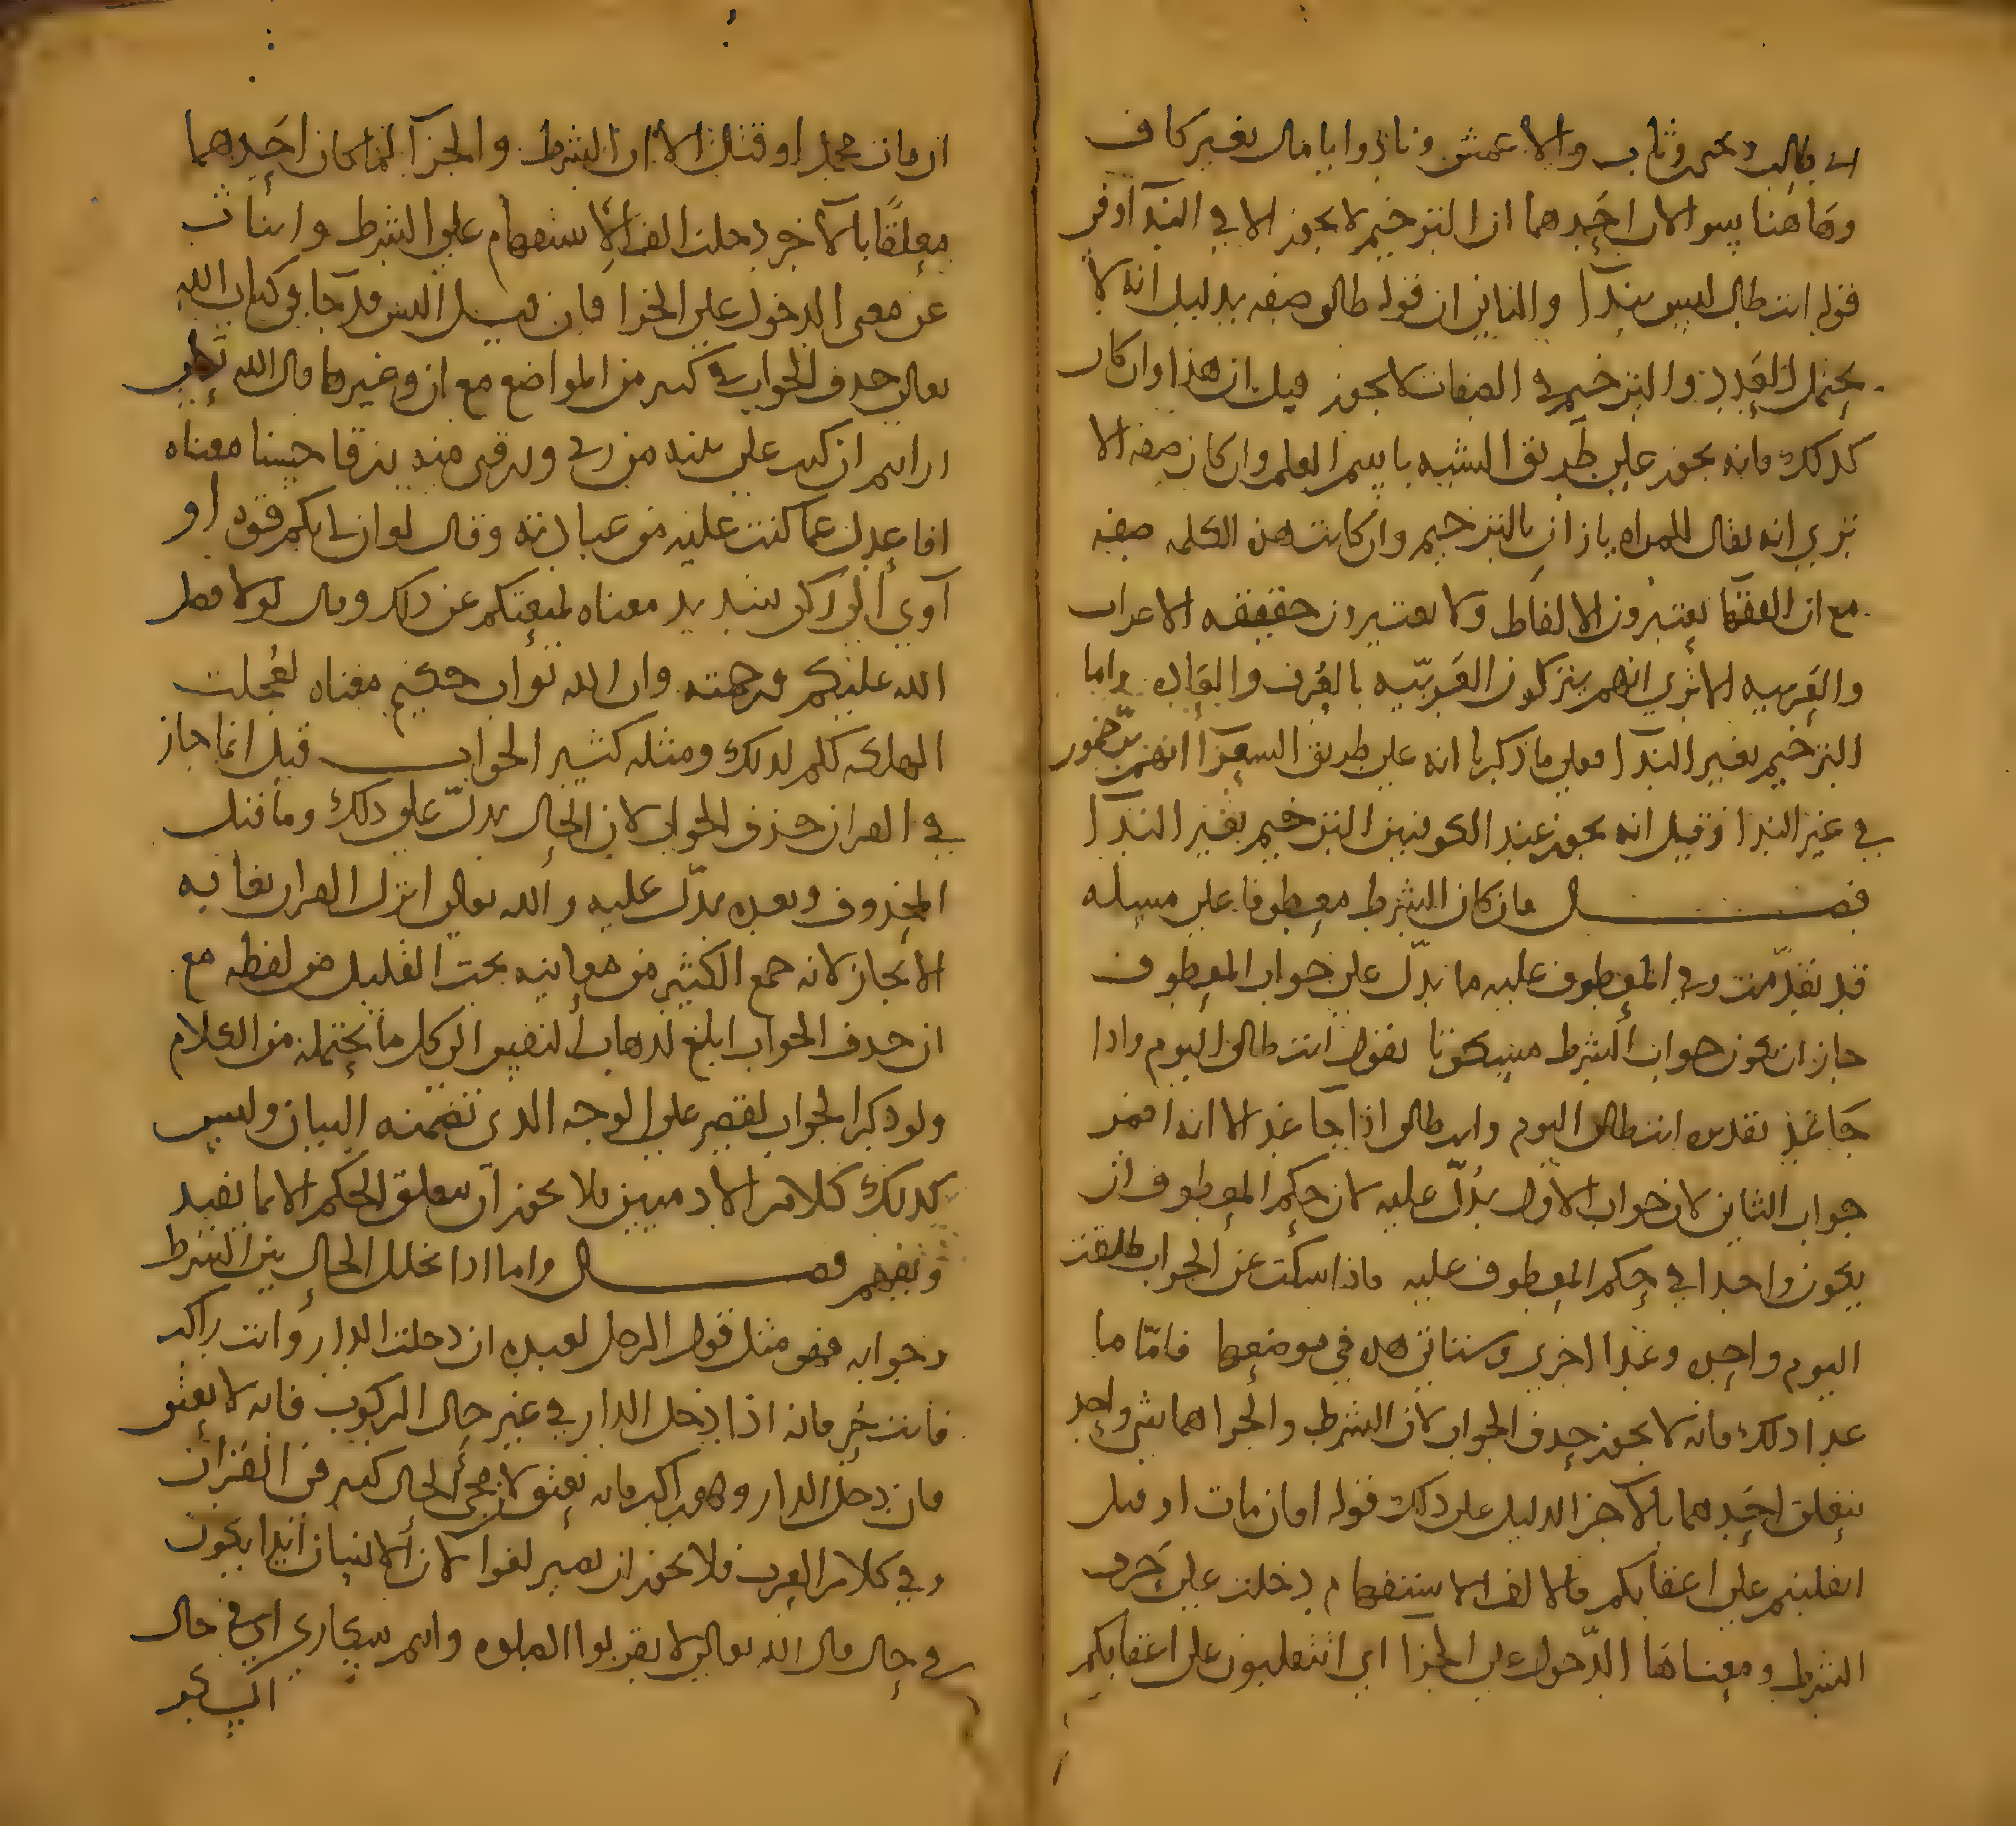 ابي طالب ويحيى بن وثاب والاعمش ونادوا يا مال بغير كاف
وهاهنا سوالان احدهما ان الترخيم لا يجوز الا في الندآ وفي
قوله انت طال ليس بندآ والثاني ان قوله طالق صفه بدليل انه لا
يحتمل العدد والترخيم في الصفات لا يجوز قيل ان هذا وان كان
كذلك فانه يجوز على طريق التشبيه باسم العلم وان كان صفه الا
ترى انه يقال للمراه يا زان بالترخيم وان كانت هذه الكلمه صفه
مع ان الفقها يعتبرون الالفاظ ولا يعتبرون حقيقه الاعراب
والعربيه الا ترى انهم يتركون العربيّه بالعرف والعاده واما
الترخيم بغير الندآ فعلى ما ذكرنا انه على طريق الشعرآ انهم يرخمون
في غير الندا وقيل انه يجوز عند الكوفيين الترخيم بغير الندآ
فصل فان كان الشرط معطوفا على مسله
قد تقدّمت وفي المعطوف عليه ما يدلّ على جواب المعطوف
جاز ان يكون جواب الشرط مسكوتا تقول انت طالق اليوم واذا
جا غد تقديره انت طالق اليوم وانت طالق اذا جا غد الا انه اضمر
جواب الثاني لان جواب الاول يدُلّ عليه لان حكم المعطوف ان
يكون واحدا في حكم المعطوف عليه فاذا سكت عن الجواب طلقت
اليوم واحده وغدا اخرى وستاتي هذه في موضعها فامّا ما
عدا ذلك فانه لا يجوز حذف الجواب لان الشرط والجزا هما شي واحد
يتعلق احدهما بالآخر الدليل على ذلك قوله افان مات او قتل
انقلبتم على اعقابكم فالالف الاستفهام دخلت على حَرف
الشرط ومعناها الدّخول على الجزا اي اتنقلبون على اعقابكم
ان مات محمد او قتل الا ان الشرط والجزآ لما كان احدهما
معلقًا بالآخر دخلت الف الاستفهام على الشرط وانابت
عن معنى الدخول على الجزا فان قيل اليس قد جآ في كتاب الله
تعالى حذف الجواب في كثير من المواضع مع ان وغيرها قال الله تعالى
ارايتم ان كنت على بينه من ربي ورزقني منه رزقا حسنا معناه
افاعدل عما كنت عليه من عبادته وقال لو ان لي بكم قوه او
آوي الى ركن شديد معناه لمنعتكم عن ذلك وقال لولا فضل
الله عليكم ورحمته وان الله تواب حكيم معناه لعجلت
الهلكه لكم لذلك ومثله كثير الجواب قيل انما جاز
في القران حذف الجواب لان الحال يدلّ على ذلك وما قبل
المحذوف وبعده يدلّ عليه والله تعالى انزل القران بغايه
الايجاز لانه جمع الكثير من معانيه تحت القليل من لفظه مع
ان حذف الجواب ابلغ لذهاب النفس الى كل ما يحتمله من الكلام
ولو ذكر الجواب لقصر على الوجه الذي تضمنه البيان وليس
كذلك كلام الادميين فلا يجوز ان يتعلق الحكم الا بما يفيد
ويفهم فصل واما اذا تخلل الحال بين الشرط
وجوابه فهو مثل قول الرجل لعبده ان دخلت الدار وانت راكب
فانت حر فانه اذا دخل الدار في غير حال الركوب فانه لا يعتق
فان دخل الدار وهو راكب فانه يعتق لان مجي الحال كثير في القران
وفي كلام العرب فلا يجوز ان يصير لغوا لان الانسان ابدا يكون
في حال قال الله تعالى لا تقربوا الصلوه وانتم سكارى اي في حال
السكر